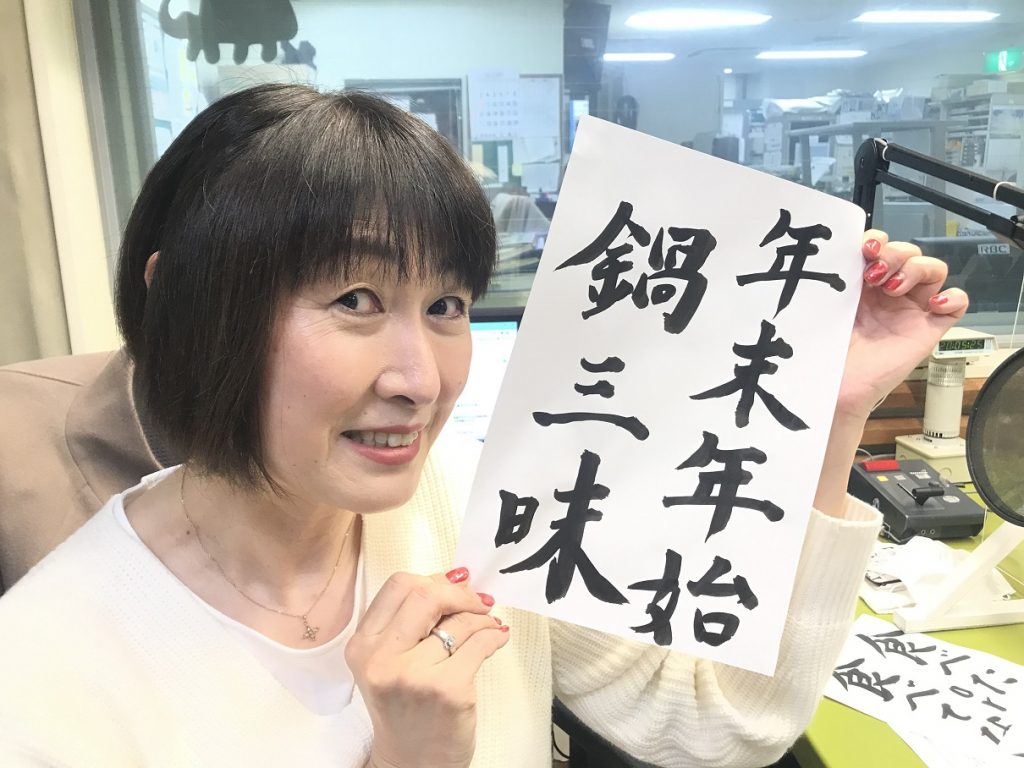 年末年始
鍋三昧
RBC
食べた
食べて